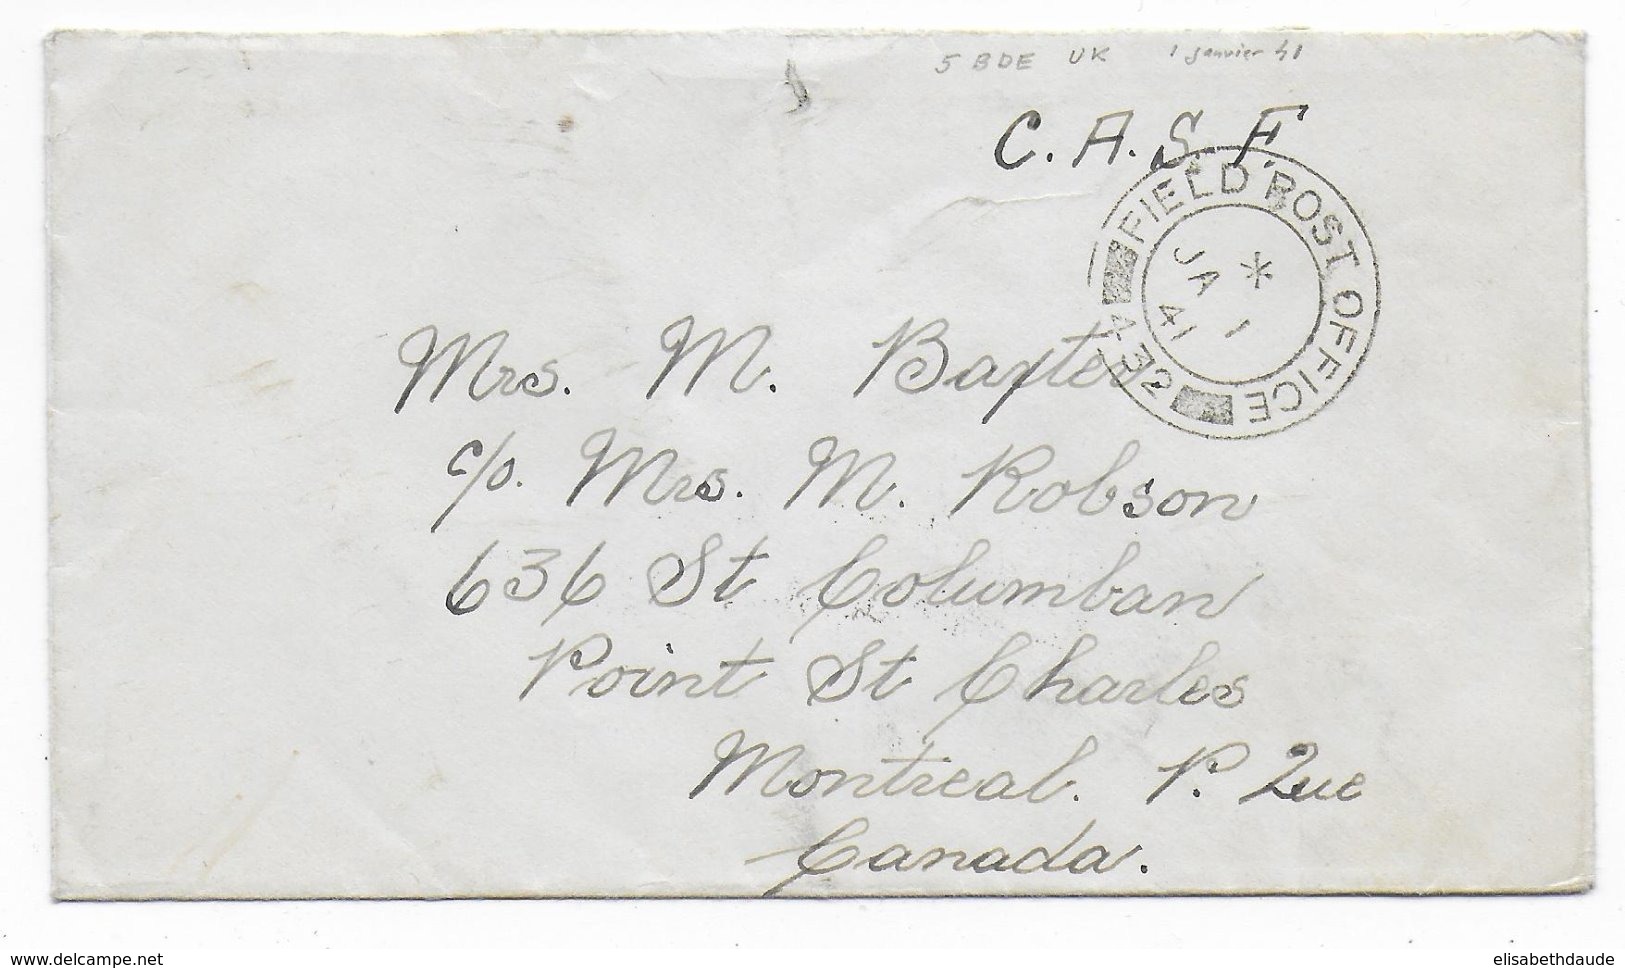 5 BDE UK 1 Janvier 41
C. A. S. F.
FIELD POST OFFICE
432
*
JA 1
41
Mrs. M. Baxter
c/o. Mrs. M. Robson
636 St Columban
Point St Charles
Montreal. P. Que
Canada.
delcampe.net
elisabethdaude